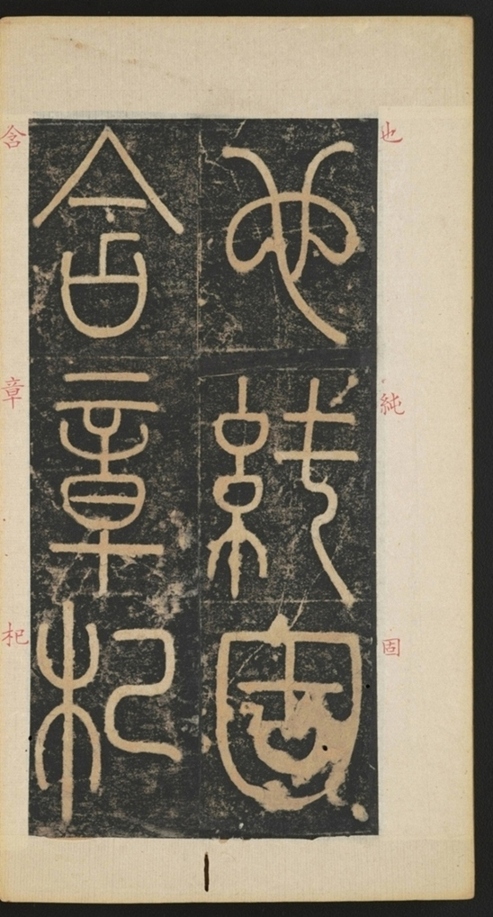 也純固
含章杞
也
純
固
含
章
杞